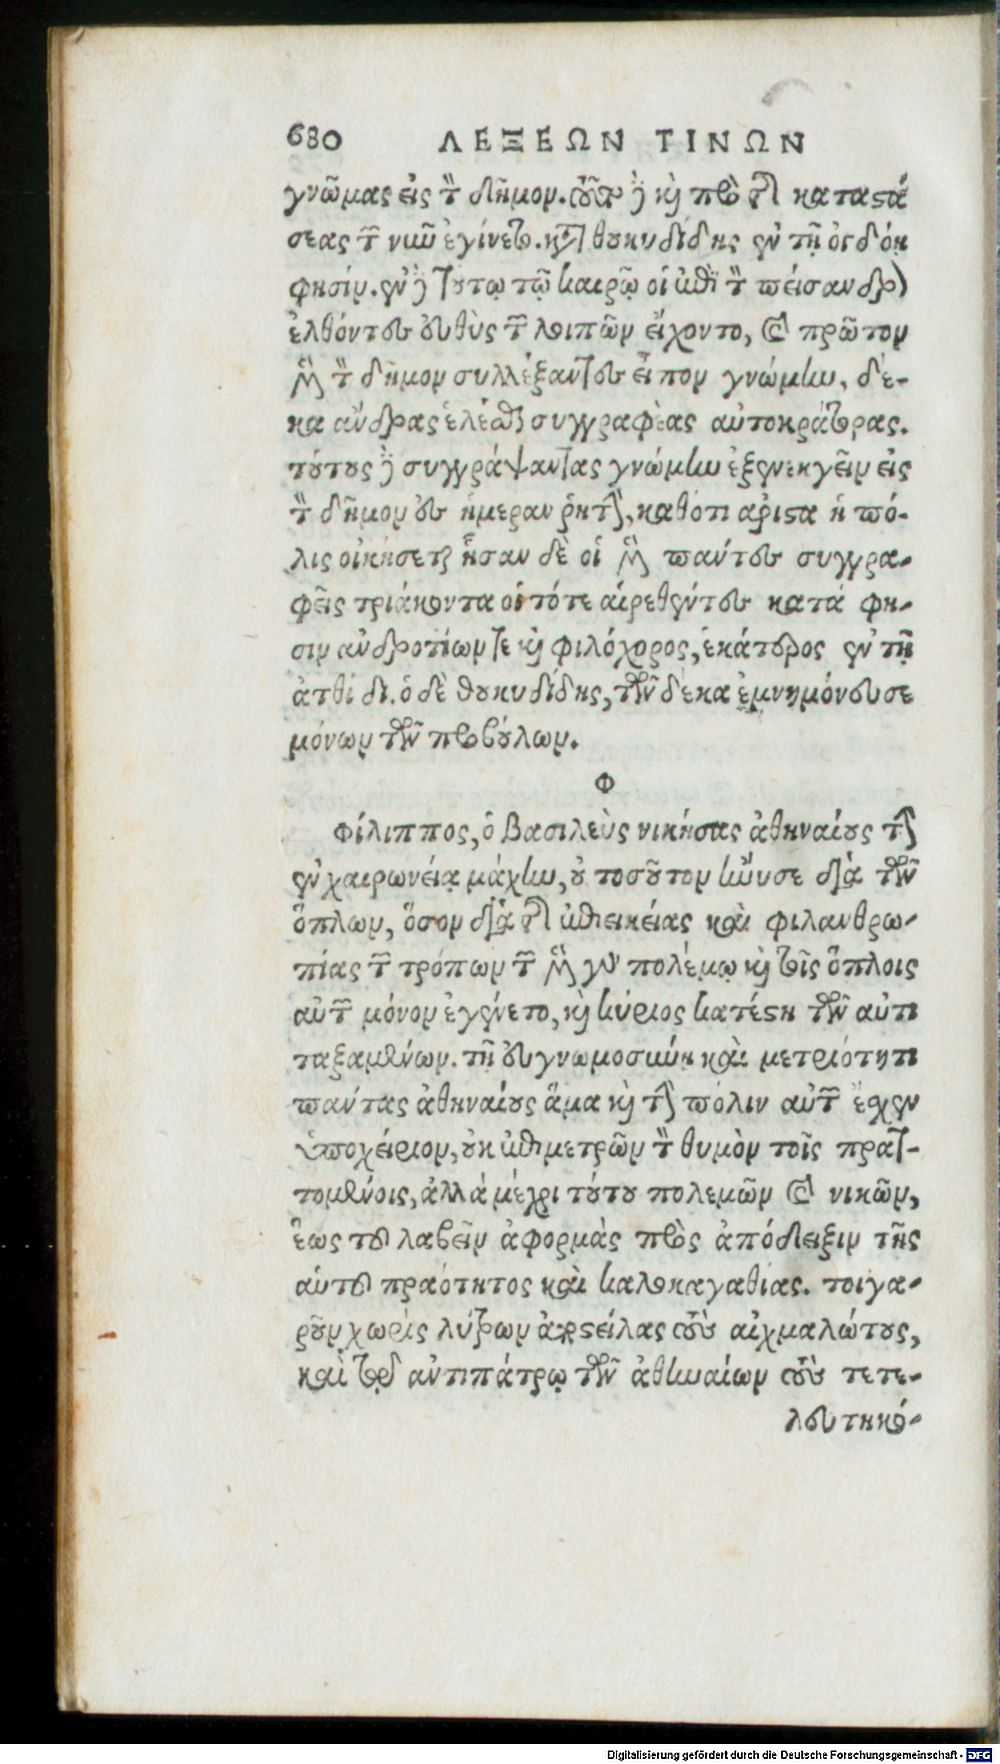 680 ΛΕΞΕΩΝ ΤΙΝΩΝ
γνῶμας εἰς τὸν δῆμον. τοῦτο δὲ καὶ πρὸ τῆς καταστά
σεως τῶν υʹ ἐγίνετο. καθὰ θουκυδίδης ἐν τῇ ὀγδόῃ
φησίν. ἐν δὲ τούτῳ τῷ καιρῷ οἱ περὶ τὸν πείσανδρον
ἐλθόντες εὐθὺς τῶν λοιπῶν εἴχοντο, καὶ πρῶτον
μὲν τὸν δῆμον συλλέξαντες εἶπον γνώμην, δέ-
κα ἄνδρας ἑλέσθαι συγγραφέας αὐτοκράτορας.
τούτους δὲ συγγράψαντας γνώμην ἐξενεγκεῖν εἰς
τὸν δῆμον ἐς ἡμέραν ῥητὴν, καθότι ἄριστα ἡ πό-
λις οἰκήσεται ἦσαν δὲ οἱ μὲν πάντες συγγρα-
φεῖς τριάκοντα οἱ τότε αἱρεθέντες κατά φη-
σιν ἀνδροτίων τε καὶ φιλόχορος, ἑκάτερος ἐν τῇ
ἀτθίδι. ὁ δὲ θουκυδίδης, τῶν δέκα ἐμνημόνευσε
μόνων τῶν προβούλων.
Φ
Φίλιππος, ὁ βασιλεὺς νικήσας ἀθηναίους τὴν
ἐν χαιρωνείᾳ μάχην, οὐ τοσοῦτον ἤνυσε διὰ τῶν
ὅπλων, ὅσον διὰ τῆς ἐπιεικείας καὶ φιλανθρω-
πίας τῶν τρόπων τῶν μὲν γὰρ πολέμῳ καὶ τοῖς ὅπλοις
αὐτῶν μόνον ἐγένετο, καὶ κύριος κατέστη τῶν ἀντι
ταξαμένων. τῇ εὐγνωμοσύνῃ καὶ μετριότητι
πάντας ἀθηναίους ἅμα καὶ τὴν πόλιν αὐτῶν ἔσχεν
ὑποχείριον, οὐκ ἐπιμετρῶν τὸν θυμὸν τοῖς πρατ-
τομένοις, ἀλλὰ μέχρι τούτου πολεμῶν καὶ νικῶν,
ἕως τοῦ λαβεῖν ἀφορμὰς πρὸς ἀπόδειξιν τῆς
αὑτοῦ πραότητος καὶ καλοκαγαθίας. τοιγα-
ροῦν χωρὶς λύτρων ἀποστείλας τοὺς αἰχμαλώτους,
καὶ παρὰ ἀντιπάτρῳ τῶν ἀθηναίων τοὺς τετε-
λευτηκό-
Digitalisierung gefördert durch die Deutsche Forschungsgemeinschaft - DFG